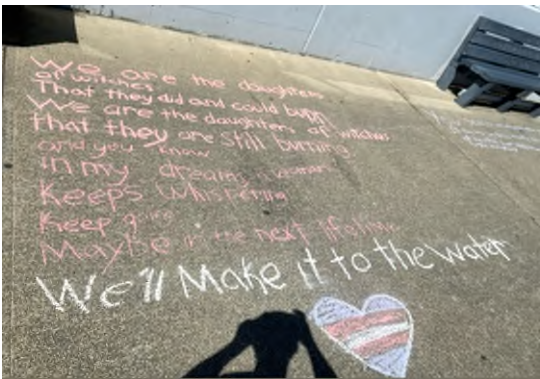 We are the daughters
of witches
That they did and could burn
We are the daughters of witches
that they are still burning
and you know
in my dreams a woman
Keeps whispering
Keep going
Maybe in the next lifetime
We'll Make it to the water